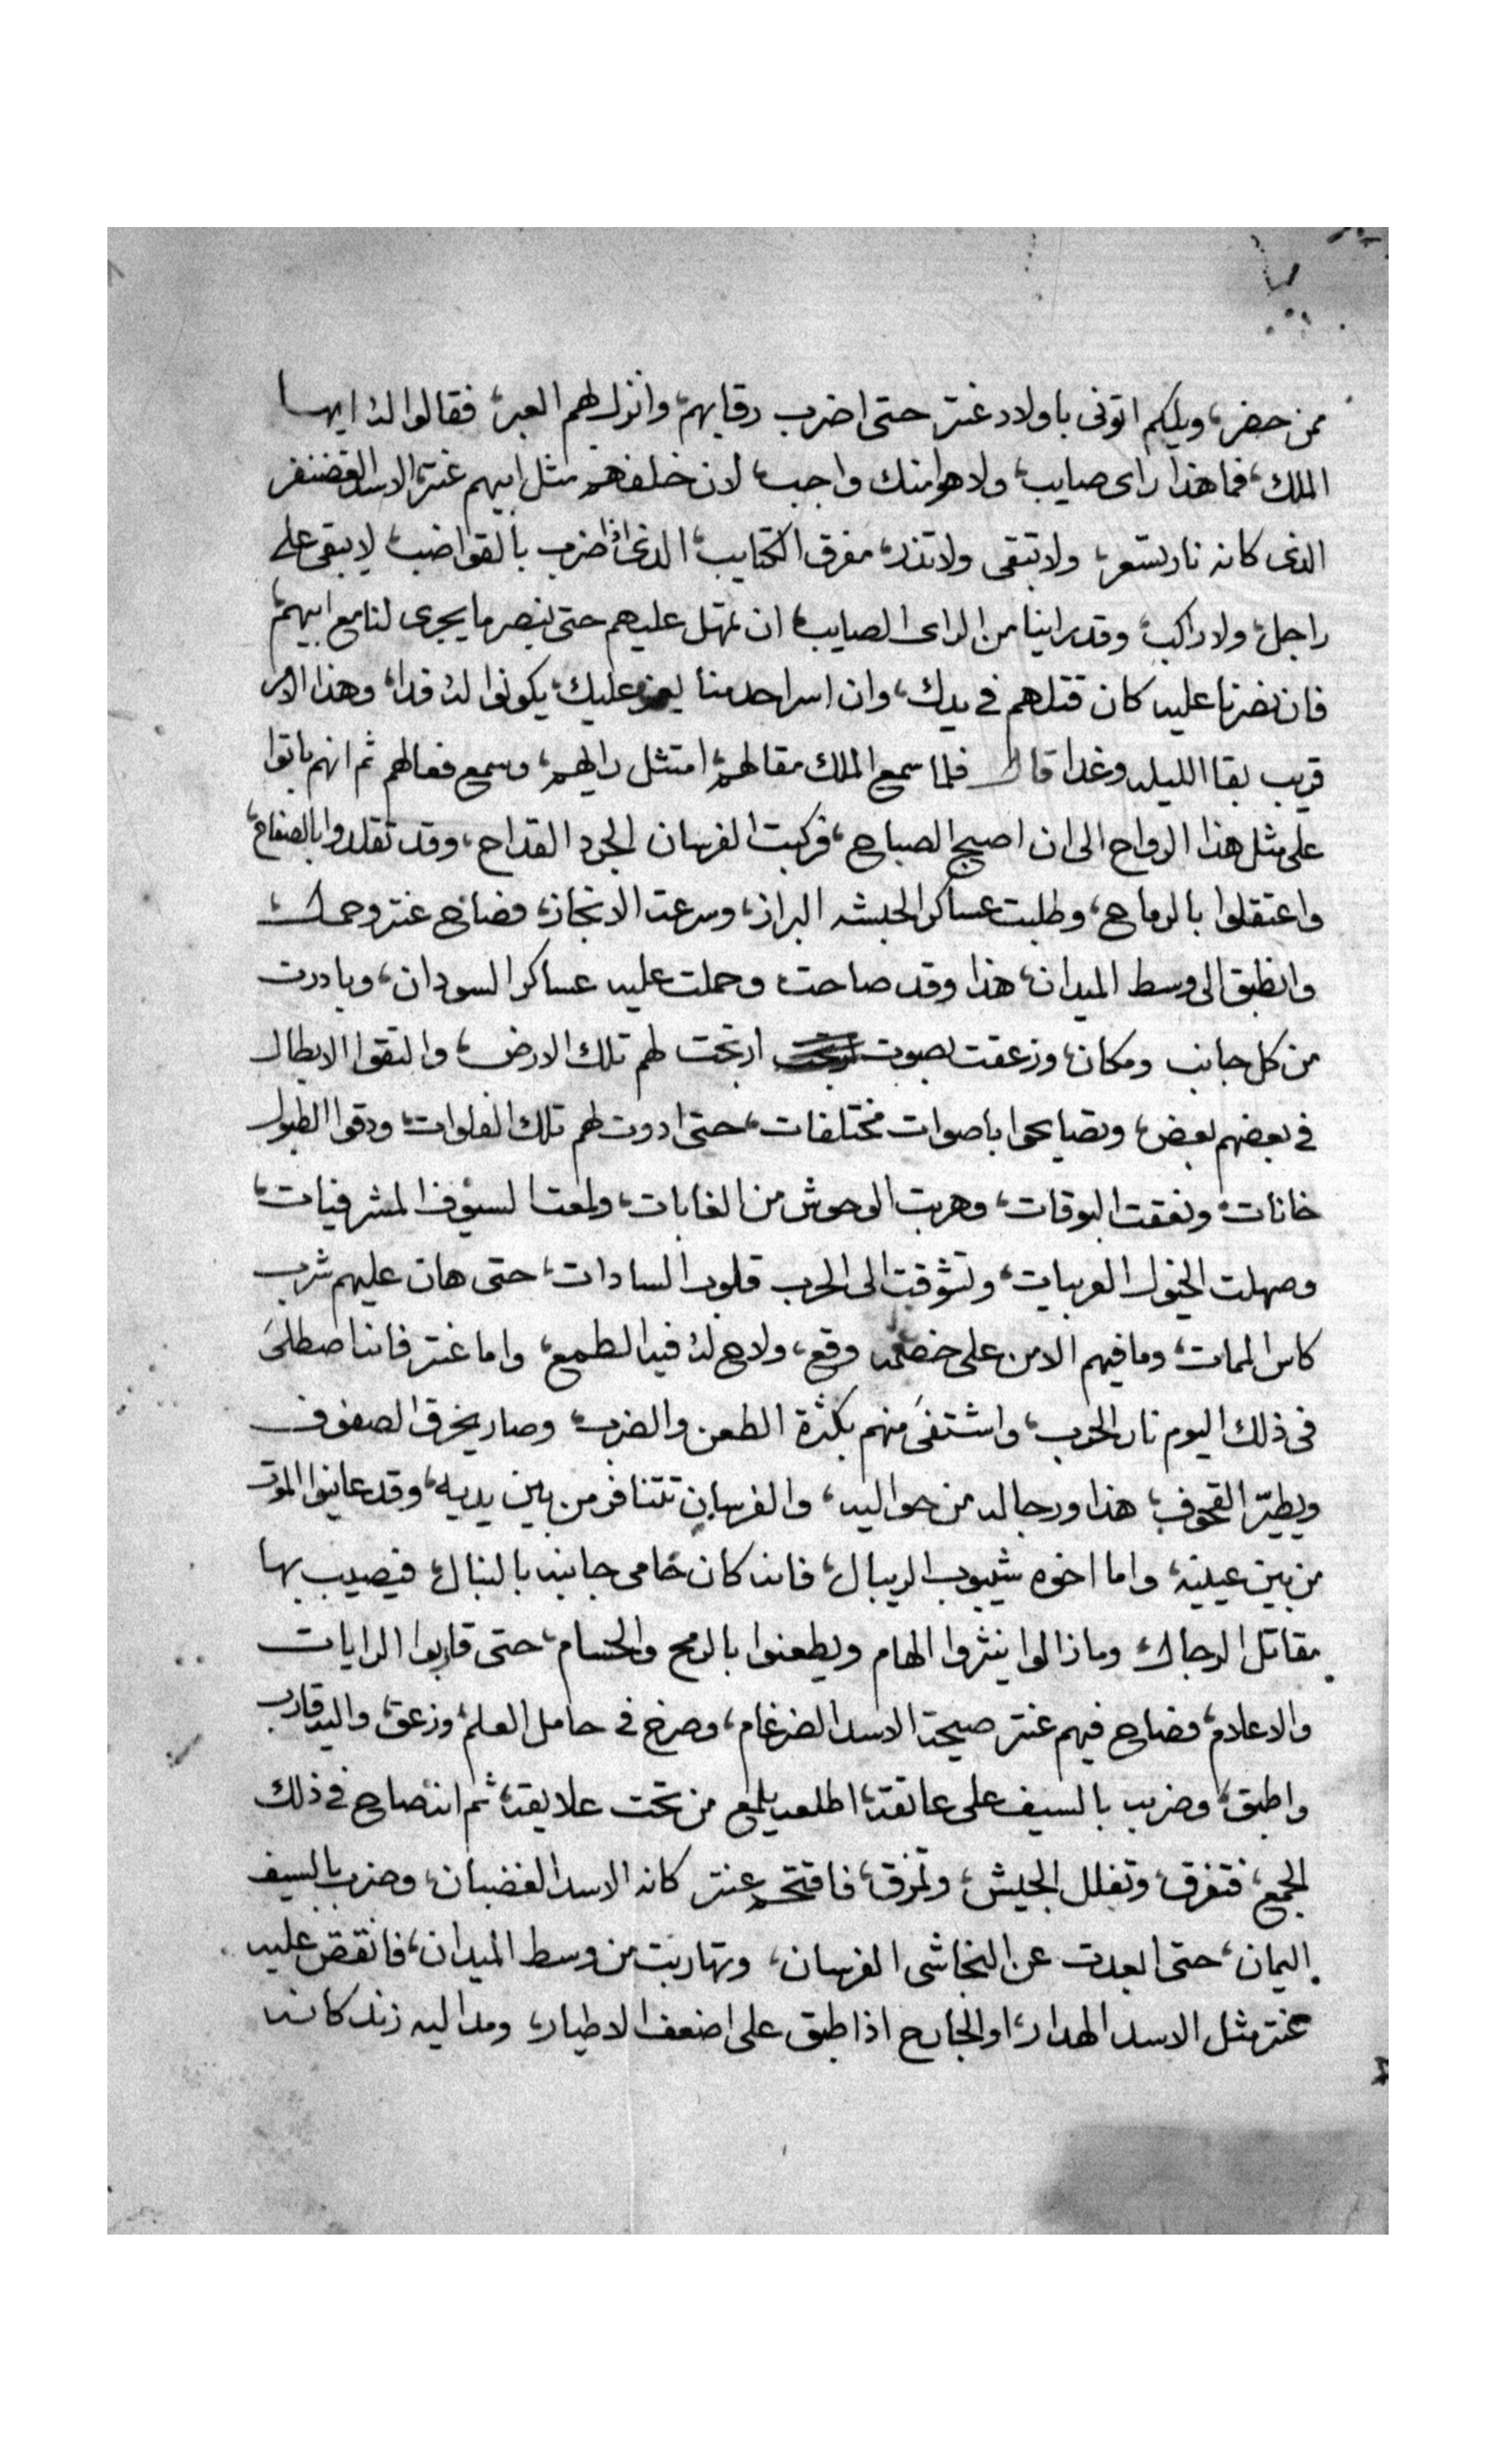 ممن حضر، ويلكم اتونى باولاد عنتر حتى اضرب رقابهم، وانزل لهم العبر، فقالوا له ايها
الملك، فما هذا راى صايب، ولا هو امنك واجب، لان خلفهم مثل ابيهم عنتر، الاسد الغضنفر
الذى كانه نار تستعر، ولا تبقى ولا تذر، مفرق الكتايب، الذى اذا ضرب بالقواضب، لا يبقى على
راجل، ولا راكب، وقد راينا من الراى الصايب، ان تمهل عليهم حتى نبصر ما يجرى لنا مع ابيهم،
فان نصرنا عليه كان قتلهم فى يدك، وان اسر احد منا يعز عليك، يكونوا له فدا، وهذا الامر
قريب بقا الليله وغدا قال فلما سمع الملك مقالهم، امتثل رايهم، وسمع فعالهم ثم انهم باتوا
على مثل هذا الرواح الى ان اصبح الصباح، فركبت الفرسان الجرد القداح، وقد تقلدوا بالصفاح،
واعتقلوا بالرماح، وطلبت عساكر الحبشه البراز، وسرعت الانجاز، فصاح عنتر وحمل،
وانطبق الى وسط الميدان، هذا وقد صاحت وحملت عليه عساكر السودان، وبادرت
من كل جانب ومكان، وزعقت بصوت ارتجت لهم تلك الارض، والتقوا الابطال
فى بعضهم بعض، وتصايحوا باصوات مختلفات، حتى ادوت لهم تلك الفلوات، ودقوا الطبول
خانات، ونعقت البوقات، وهربت الوحوش من الغابات، ولمعت السيوف المشرفيات،
وصهلت الخيول العربيات، وتشوقت الى الحرب قلوب السادات، حتى هان عليهم شرب
كاس الممات، وما فيهم الا من على خصمه وقع، ولاح له فيه الطمع، واما عنتر فانه اصطلى
فى ذلك اليوم نار الحرب، واشتفى منهم بكثرة الطعن والضرب، وصار يخرق الصفوف
ويطيّر القحوف، هذا ورجاله من حواليه، والفرسان تتنافر من بين يديه، وقد عاينوا الموت
من بين عينيه، واما اخوه شيبوب الريبال، فانه كان حامى جانبه بالنبال، فيصيب بها
مقاتل الرجال، وما زالوا ينثروا الهام ويطعنوا بالرمح والحسام، حتى قاربوا الرايات
والاعلام، فصاح فيهم عنتر صيحة الاسد الضرغام، وصرخ فى حامل العلم، وزعق، واليه قارب
واطبق، وضرب بالسيف على عاتقه، اطلعه يلمع من تحت علايقه، ثم انه صاح فى ذلك
الجمع، فتفرق، وتفلل الجيش، وتمزق، فاقتحم عنتر كانه الاسد الغضبان، وضرب بالسيف
اليمان، حتى ابعدت عن النجاشى الفرسان، وتهاربت من وسط الميدان، فانقض عليه
عنتر مثل الاسد الهدار، او الجارح اذا طبق على اضعف الاطيار، ومد اليه زند كانه